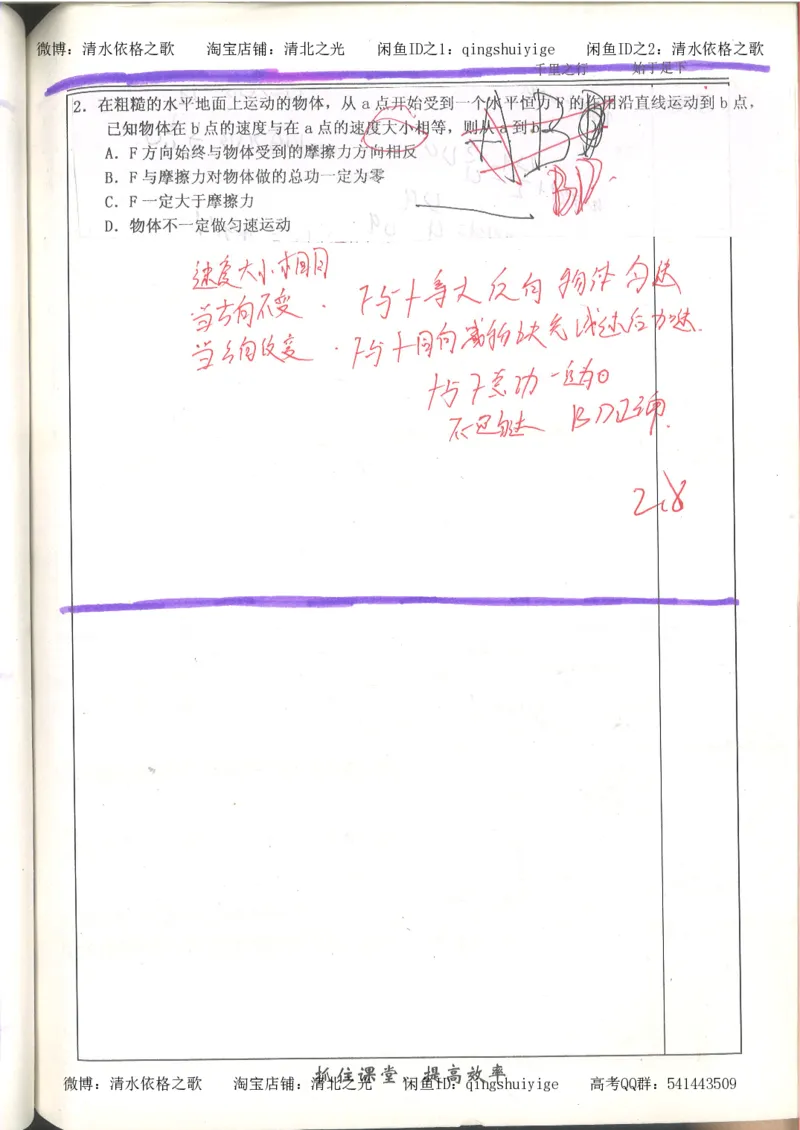 微博：清水依格之歌 淘宝店铺：清北之光 闲鱼ID之1：qingshuiyige 闲鱼ID之2：清水依格之歌
千里之行 始于足下
2．在粗糙的水平地面上运动的物体，从a点开始受到一个水平恒力F的作用沿直线运动到b点，
已知物体在b点的速度与在a点的速度大小相等，则从a到b
ABD
A．F方向始终与物体受到的摩擦力方向相反
B．F与摩擦力对物体做的总功一定为零
BD
C．F一定大于摩擦力
D．物体不一定做匀速运动
速度大小相同
当方向不变．F与f等大反向 物体匀速
当方向改变．F与f同向 先减速后加速．
f与F总功一定为0
不一定匀速 BD正确
2.8
抓住课堂，提高效率
微博：清水依格之歌 淘宝店铺：清北之光 闲鱼ID：qingshuiyige 高考QQ群：541443509